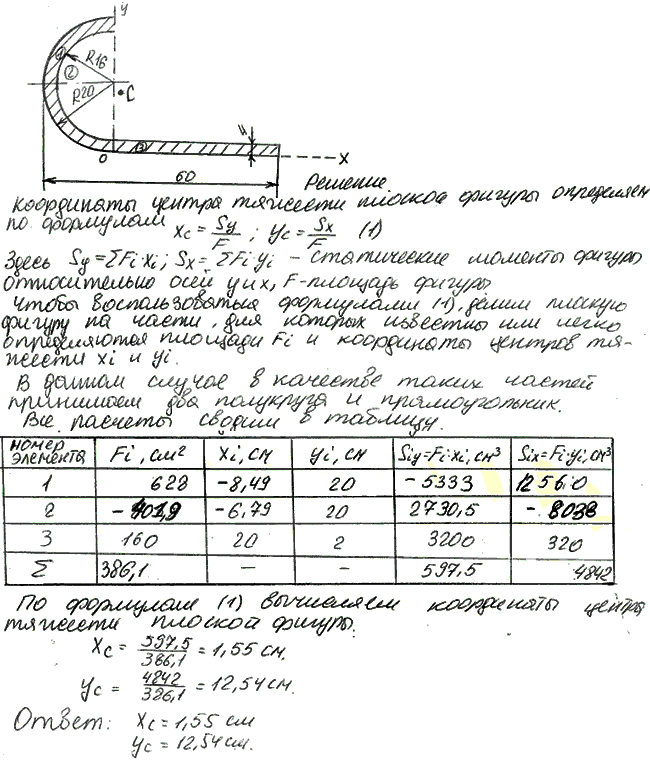 y
1
R16
2
C
R20
3
4
0
x
60
Решение.
Координаты центра тяжести плоской фигуры определяем
по формулам xc = Sy/F ; yc = Sx/F (1)
Здесь Sy=ΣFi·xi ; Sx = ΣFi·yi – статические моменты фигуры
относительно осей y и x, F-площадь фигуры
Чтобы воспользоваться формулами (1), делим плоскую
фигуру на части, для которых известны или легко
определяются площади Fi и координаты центров тя-
жести xi и yi.
В данном случае в качестве таких частей
принимаем два полукруга и прямоугольник.
Все расчеты сводим в таблицу.
номер элемента Fi, см² Xi, см yi, см Siy=Fi·xi, см³ Six=Fi·yi, см³
1 628 -8,49 20 -5333 12560
2 -401,9 -6,79 20 2730,5 -8038
3 160 20 2 3200 320
Σ 386,1 — — 597,5 4842
По формулам (1) вычисляем координаты центра
тяжести плоской фигуры.
Xc = 597,5/386,1 = 1,55 см.
yc = 4842/386,1 = 12,54 см.
Ответ: Xc = 1,55 см
yc = 12,54 см.